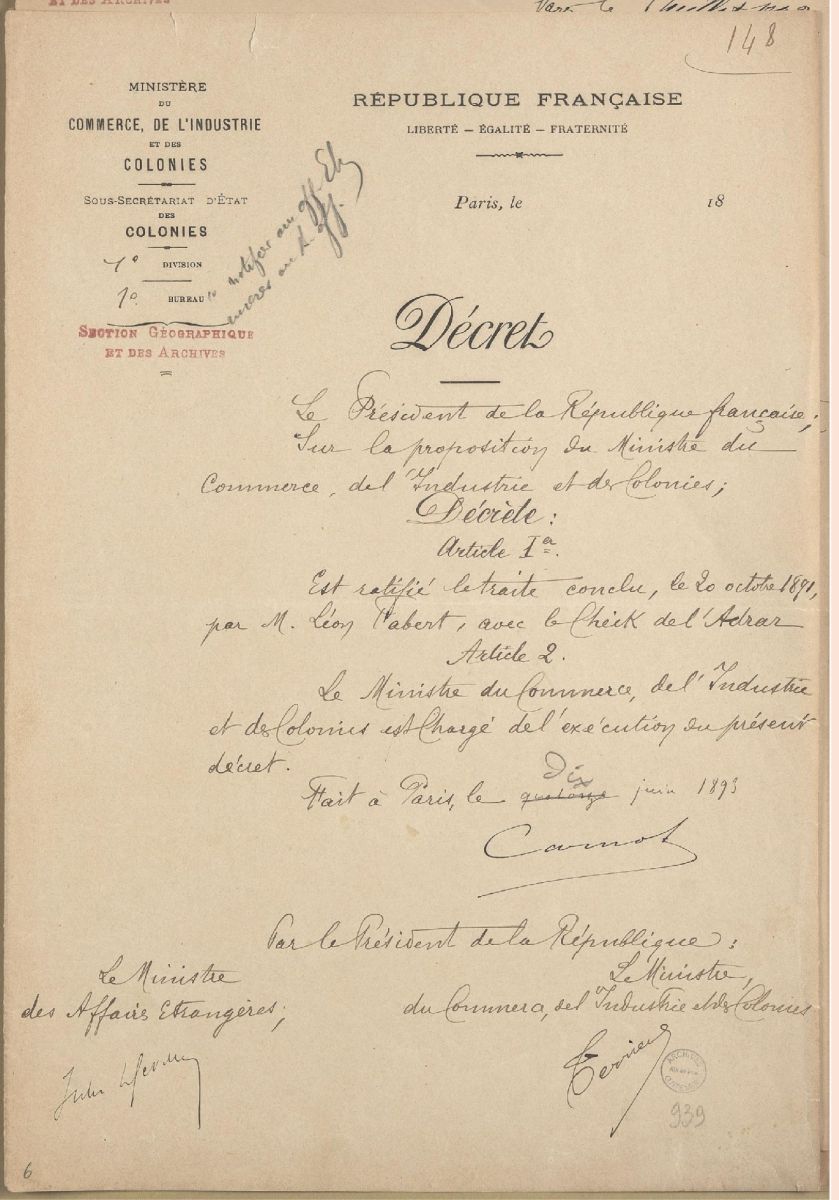 148
MINISTÈRE
DU
COMMERCE, DE L'INDUSTRIE
ET DES
COLONIES
SOUS-SECRÉTARIAT D'ÉTAT
DES
COLONIES
1e DIVISION
1e BUREAU
SECTION GÉOGRAPHIQUE
ET DES ARCHIVES
RÉPUBLIQUE FRANÇAISE
LIBERTÉ – ÉGALITÉ – FRATERNITÉ
Paris, le 18
notifier aux aff.
aff.
Décret
Le Président de la République française;
Sur la proposition du Ministre du
Commerce, de l'Industrie et des Colonies;
Décrète:
Article 1er.
Est ratifié le traité conclu, le 20 octobre 1891,
par M. Léon Fabert, avec le Cheik de l'Adrar
Article 2.
Le Ministre du Commerce, de l'Industrie
et des Colonies est Chargé de l'exécution du présent
décret.
Dix
Fait à Paris, le juin 1893
Carnot
Par le Président de la République:
Le Ministre
des Affaires Etrangères;
Le Ministre,
du Commerce, de l'Industrie et des Colonies
Terrier
ARCHIVES
939
6